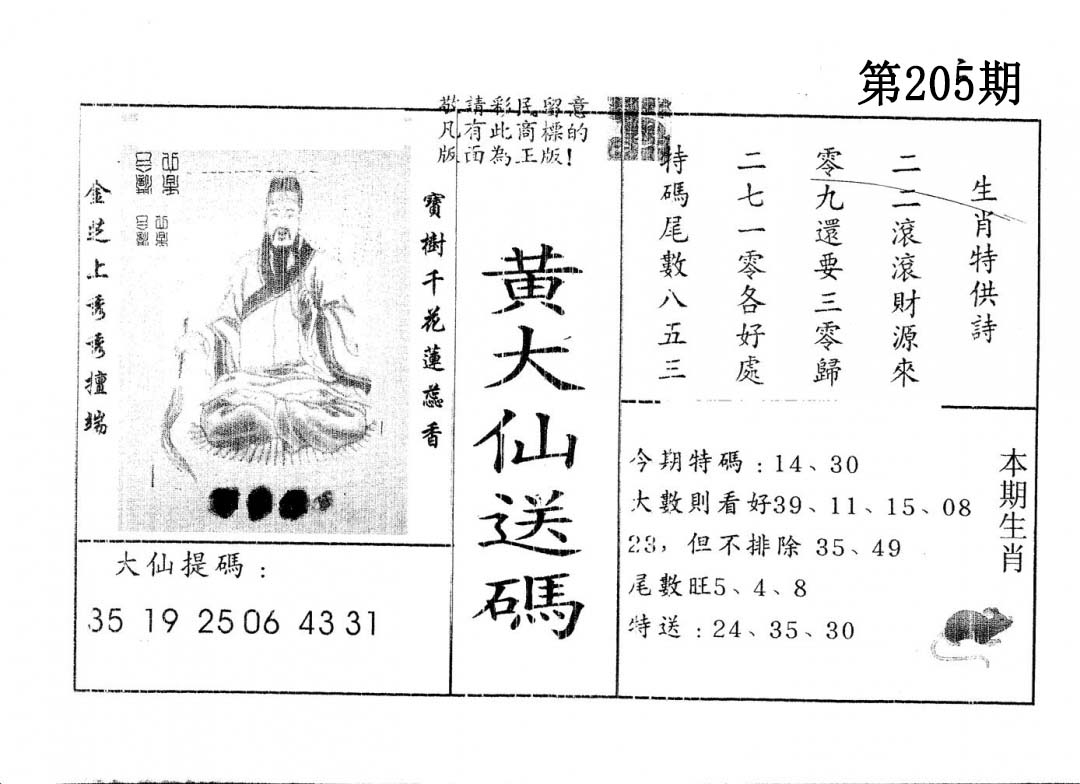 第205期
敬請彩民留意
凡有此商標的
版面為正版!
寶樹千花蓮蕊香
金
上
壇端
大仙提碼:
35 19 25 06 43 31
黃大仙送碼
生肖特供詩
二二滾滾財源來
零九還要三零歸
二七一零各好處
特碼尾數八五三
本期生肖
今期特碼:14、30
大數則看好39、11、15、08
23,但不排除 35、49
尾數旺5、4、8
特送:24、35、30